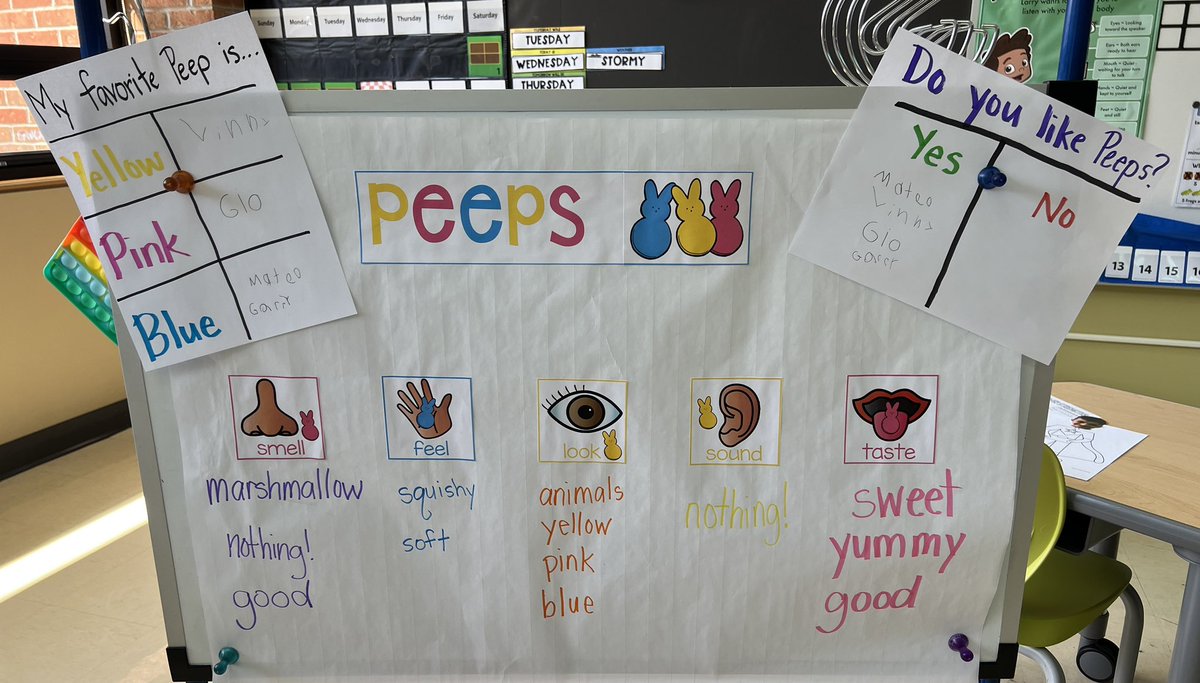 Sunday Monday Tuesday Wednesday Thursday Friday Saturday
TUESDAY
WEDNESDAY
THURSDAY
STORMY
listen with you
body
Eyes = Looking
toward the speaker
Ears = Both ears
ready to hear
Mouth = Quiet
waiting for your turn
to talk
Hands = Quiet and
kept to yourself
Feet = Quiet
and still
My favorite Peep is...
Yellow
Vinns
Pink
Gio
Blue
Mateo
Garry
peeps
Do you like Peeps?
Yes
Mateo
Vinns
Gio
Garry
No
13 14 15
smell
marshmallow
nothing!
good
feel
squishy
soft
look
animals
yellow
pink
blue
sound
nothing!
taste
sweet
yummy
good